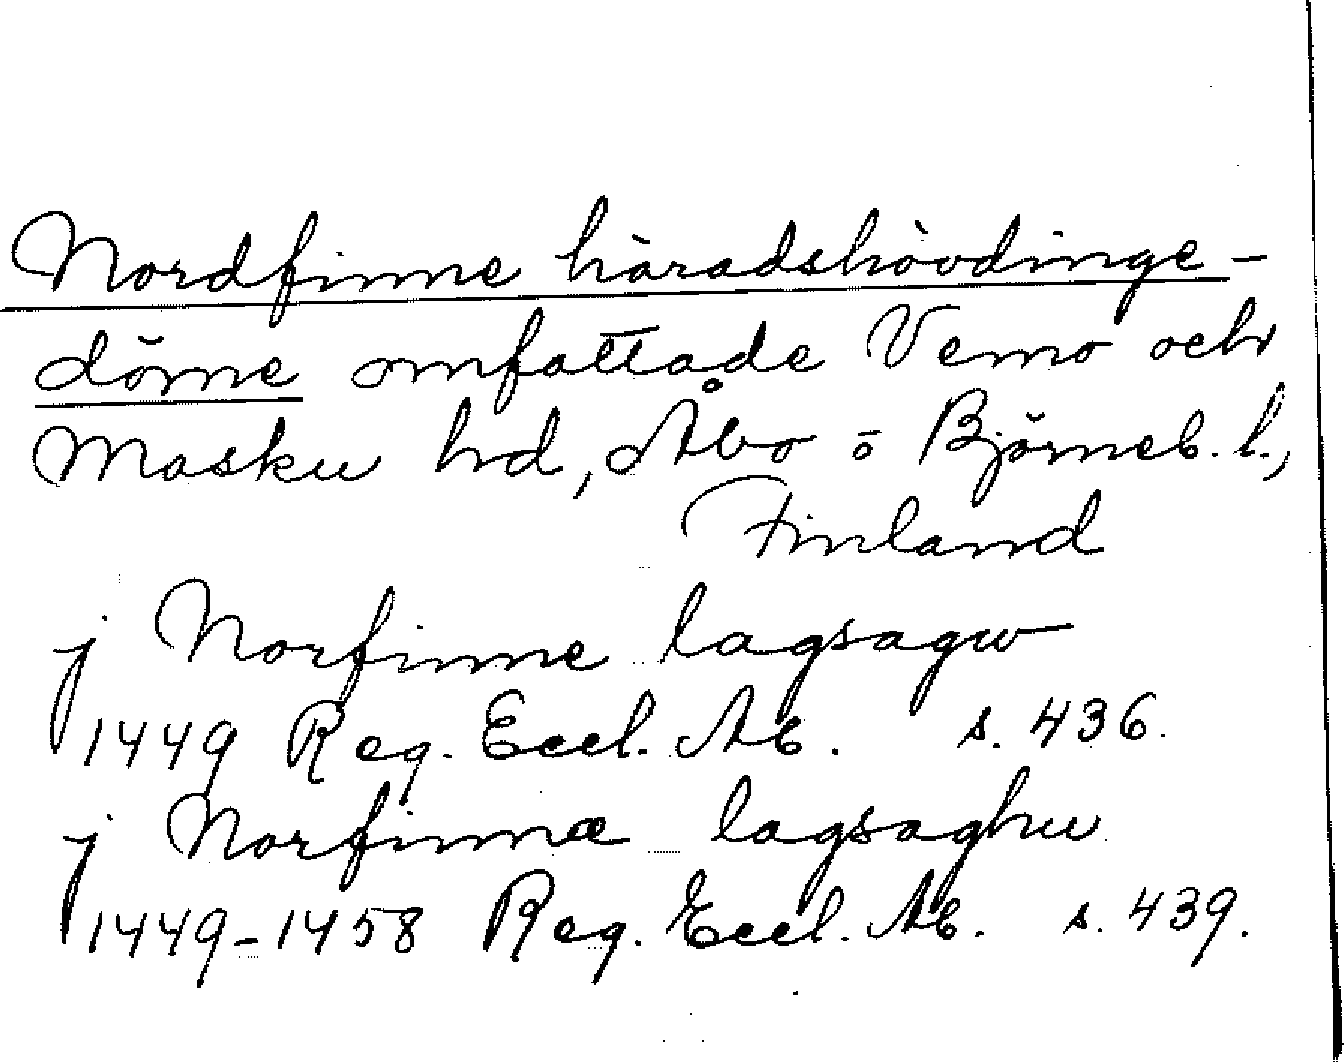 Nordfinne häradshövdinge-
döme omfattade Vemo och
Masku hd, Åbo o Björneb. l.,
Finland
j Norfinne lagsagw
1449 Reg. Eccl. Ab. s. 436.
j Norfinnæ lagsaghu
1449-1458 Reg. Eccl. Ab. s. 439.